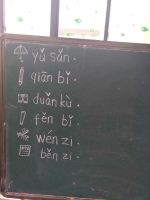 yǔ sǎn.
qiān bǐ.
duǎn kù.
fěn bǐ.
wén zi.
běn zi.